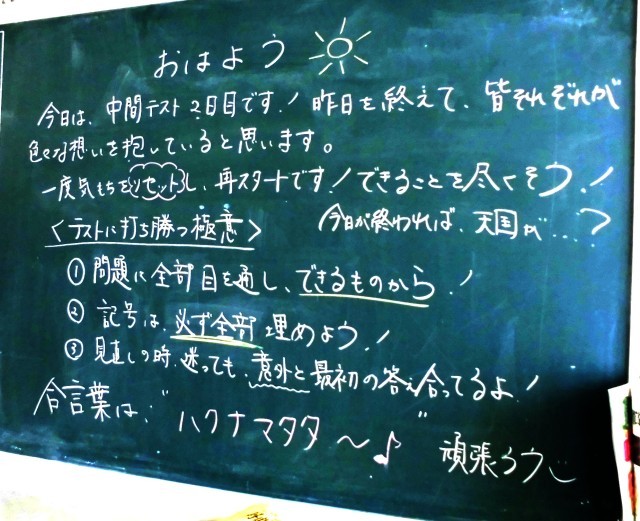 おはよう
今日は、中間テスト2日目です！昨日を終えて、皆それぞれが
色々な想いを抱していると思います。
一度気もちをリセットし、再スタートです！できることを尽くそう！
〈テストに打ち勝つ極意〉 今日が終われば、天国が…？
① 問題に全部目を通し、できるものから！
② 記号は、必ず全部埋めよう！
③ 見直しの時、迷っても、意外と最初の答え合ってるよ！
合言葉は、"ハクナマタタ〜♪" 頑張ろう